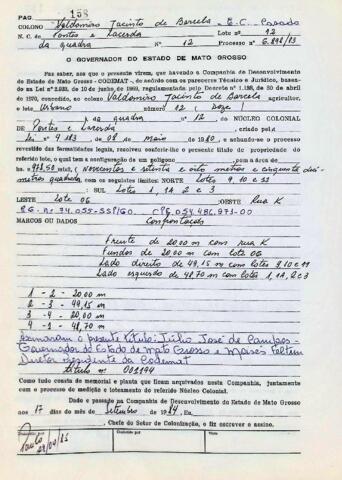 PAG 158
COLONO Valdomiro Jacinto de Barcelo - E.C. Casado
N. C. de Pontes e Lacerda Lote no 12
da quadra N° 12 Processo n° 6.898/83
O GOVERNADOR DO ESTADO DE MATO GROSSO
Faz saber, aos que o presente virem, que havendo a Companhia de Desenvolvimento
do Estado de Mato Grosso - CODEMAT, de acordo com os pareceres Técnico e Jurídico, basea-
da na Lei n° 2.933, de 10 de junho de 1969, regulamentada pelo Decreto n° 1.138, de 30 de abril
de 1970, concedido, ao colono Valdomiro Jacinto de Barcelo agricultor,
e lote Urbano número 12 (doze)
da quadra n° 12 do NÚCLEO COLONIAL
DE Pontes e Lacerda, criado pela
Lei n° 4.183 de 08 de maio de 1980, e achando-se o processo
revestido das formalidades legais, resolveu conferir-lhe o presente título de propriedade do
referido lote, o qual tem a configuração de um polígono com a área de
hs 978,50 mts2 (Novecentos e setenta e oito metros e cinquenta deci-
metros quadrados com os seguintes limites: NORTE Lotes 9, 10 e 11
SUL Lotes 1, 1A 2 e 3
LESTE Lote 06 OESTE Rua K
MARCOS OU DADOS Confrontações
Frente de 20,00 m com rua K
Fundos de 20,00 m com lote 06
Lado direito de 49,15 m com lotes 9, 10 e 11
Lado esquerdo de 48,70 m com lotes 1, 1A, 2 e 3
1 - 2 - 20,00 m
2 - 3 - 49,15 m
3 - 4 - 20,00 m
4 - 1 - 48,70 m
Assinaram o presente título: Júlio José de Campos -
Governador do Estado de Mato Grosso e Moises Feltrin
Diretor Presidente da Codemat
Título n° 001194
Como tudo consta do memorial e planta que ficam arquivados nesta Companhia, juntamente
com o processo de medição e loteamento do referido Núcleo Colonial.
Dado e passado na Companhia de Desenvolvimento do Estado de Mato Grosso
aos 17 dias do mês de Setembro de 1984, Eu,
Chefe do Setor de Colonização, o fiz escrever e assino.